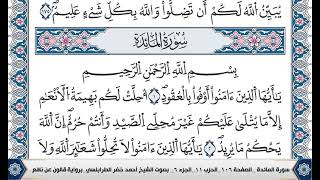 يُبَيِّنُ اَ۬للَّهُ لَكُمْ أَن تَضِلُّواْ وَاللَّهُ بِكُلِّ شَيْءٍ عَلِيمٌ
سُورَةُ الْمَائِدَةِ
بِسْمِ اِ۬للَّهِ اِ۬لرَّحْمَٰنِ اِ۬لرَّحِيمِ
يَٰأَيُّهَا اَ۬لذِينَ ءَامَنُواْ أَوْفُواْ بِالْعُقُودِ ۝١ أُحِلَّتْ لَكُم بَهِيمَةُ اُ۬لْأَنْعَٰمِ
إِلَّا مَا يُتْلَىٰ عَلَيْكُمْ غَيْرَ مُحِلِّے اِ۬لصَّيْدِ وَأَنتُمْ حُرُمٌ إِنَّ اَ۬للَّهَ
يَحْكُمُ مَا يُرِيدُ ۝٢ يَٰأَيُّهَا اَ۬لذِينَ ءَامَنُواْ لَا تُحِلُّواْ شَعَٰٓئِرَ اَ۬للَّهِ وَلَا
سورة المائدة _ الصفحة ١٠٦ _ الحزب ١١ _ الجزء ٦ _ بصوت الشيخ أحمد خضر الطرابلسي _ برواية قالون عن نافع